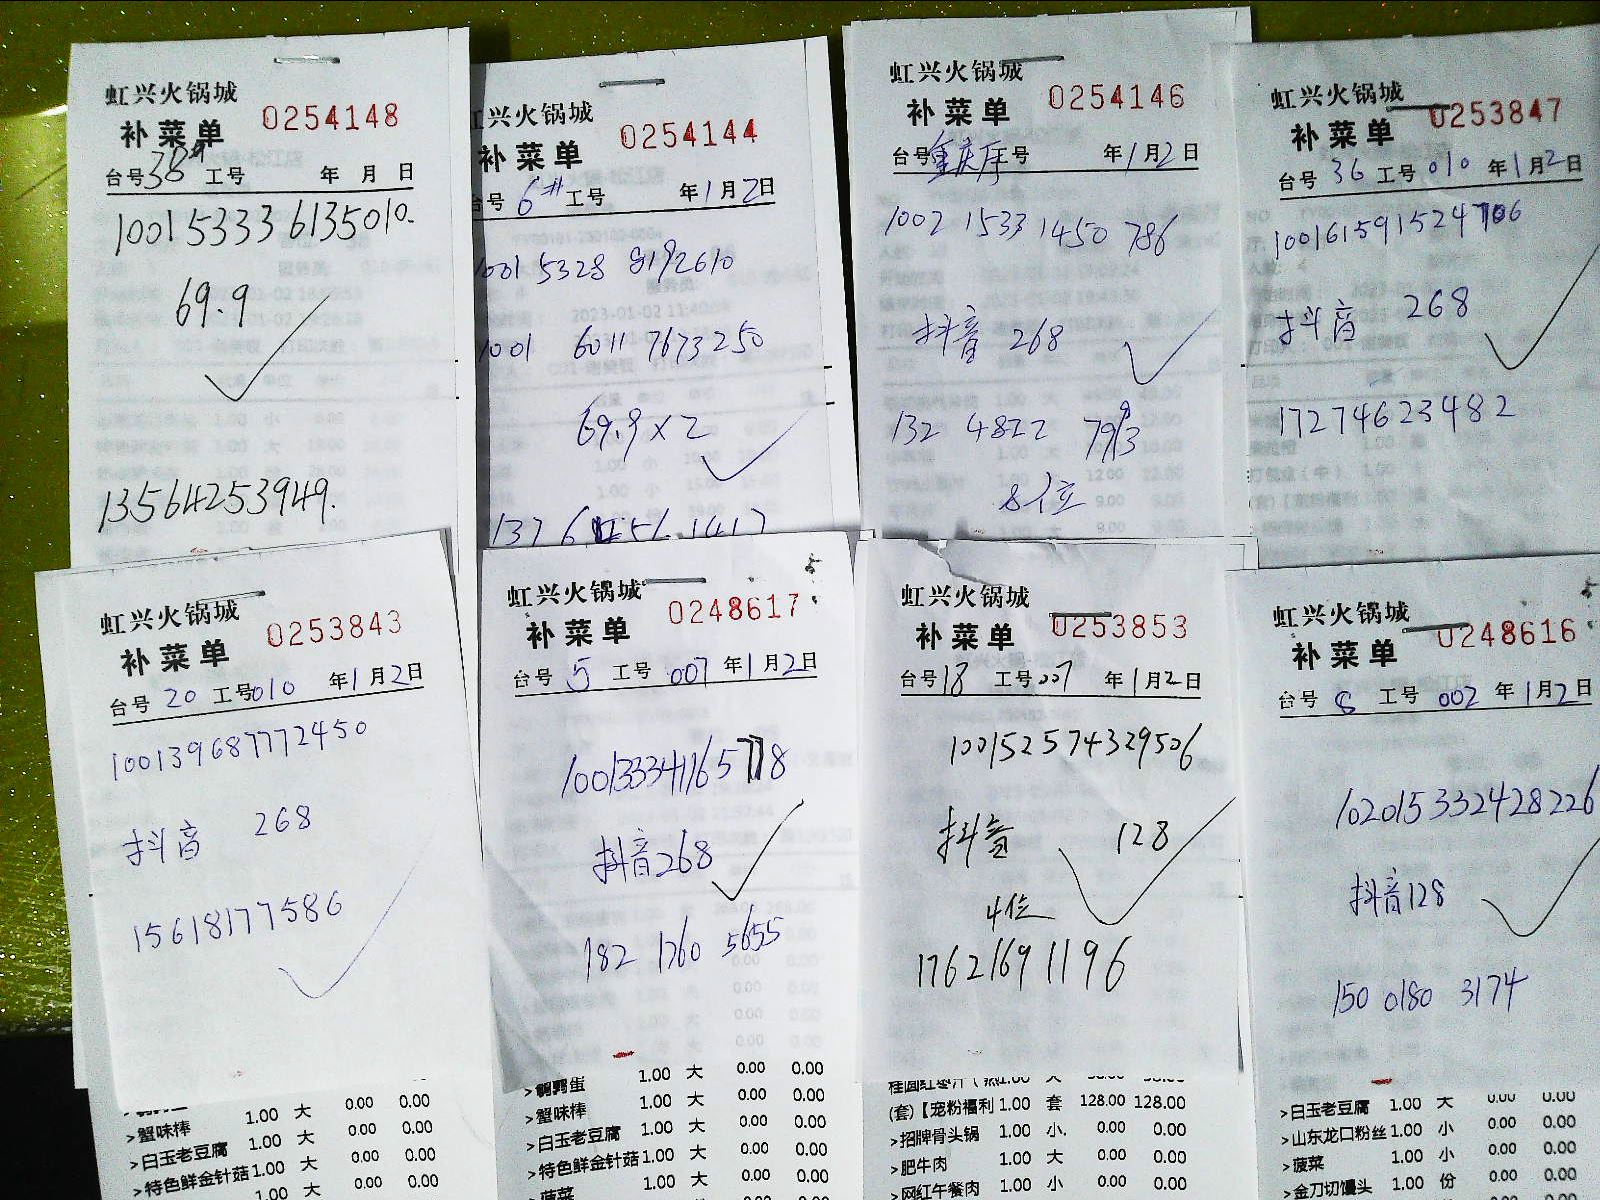 虹兴火锅城
补菜单 0254148
台号38# 工号 年 月 日
10015333 6135010.
69.9
13564253949.
虹兴火锅城
补菜单 0254144
台号 6# 工号 年1月2日
1001 5328 8192610
1001 6011 7673250
69.9×2
虹兴火锅城
补菜单 0254146
台号重庆厅号 年1月2日
1002 1533 1450 786
抖音 268
132 4822
8位
虹兴火锅城
补菜单 0253847
台号 36 工号 010 年1月2日
抖音 268
17274623482
虹兴火锅城
补菜单 0253843
台号 20 工号010 年1月2日
100139687772450
抖音 268
15618177586
虹兴火锅城
补菜单 0248617
台号 5 工号 007 年1月2日
100133341165778
抖音268
182 1760 5655
虹兴火锅城
补菜单 0253853
台号18 工号007 年1月2日
100152574329506
抖音 128
4位
17621691196
虹兴火锅城
补菜单 0248616
台号 8 工号 002 年1月2日
102015332428226
抖音128
150 0180 3174
>蟹味棒 1.00 大 0.00 0.00
>白玉老豆腐 1.00 大 0.00 0.00
>特色鲜金针菇1.00 大 0.00 0.00
1.00 大 0.00 0.00
>鹌鹑蛋 1.00 大 0.00 0.00
>蟹味棒 1.00 大 0.00 0.00
>白玉老豆腐 1.00 大 0.00 0.00
>特色鲜金针菇1.00 大 0.00 0.00
>菠菜 1.00 大 0.00 0.00
(套)【宠粉福利 1.00 套 128.00 128.00
>招牌骨头锅 1.00 小. 0.00 0.00
>肥牛肉 1.00 大 0.00 0.00
>网红午餐肉 1.00 小 0.00 0.00
>白玉老豆腐 1.00 大 0.00 0.00
>山东龙口粉丝 1.00 小 0.00 0.00
>菠菜 1.00 小 0.00 0.00
>金刀切馒头 1.00 份 0.00 0.00